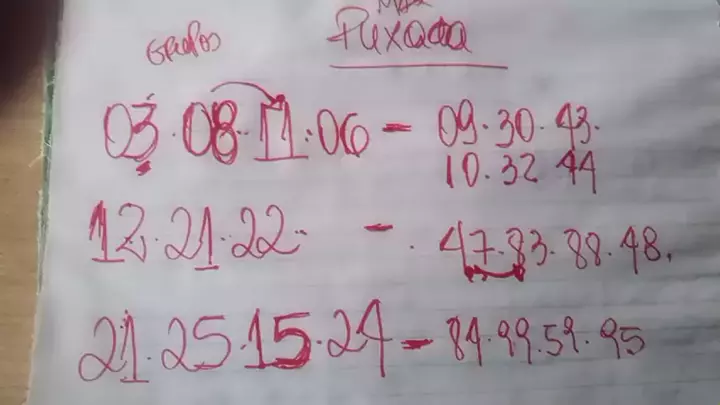 GRUPOS
Puxada
03.08.11.06 - 09.30.43.
10.32 44
12.21.22. - 47.83.88.48.
21.25.15.24 - 84.99.59.95